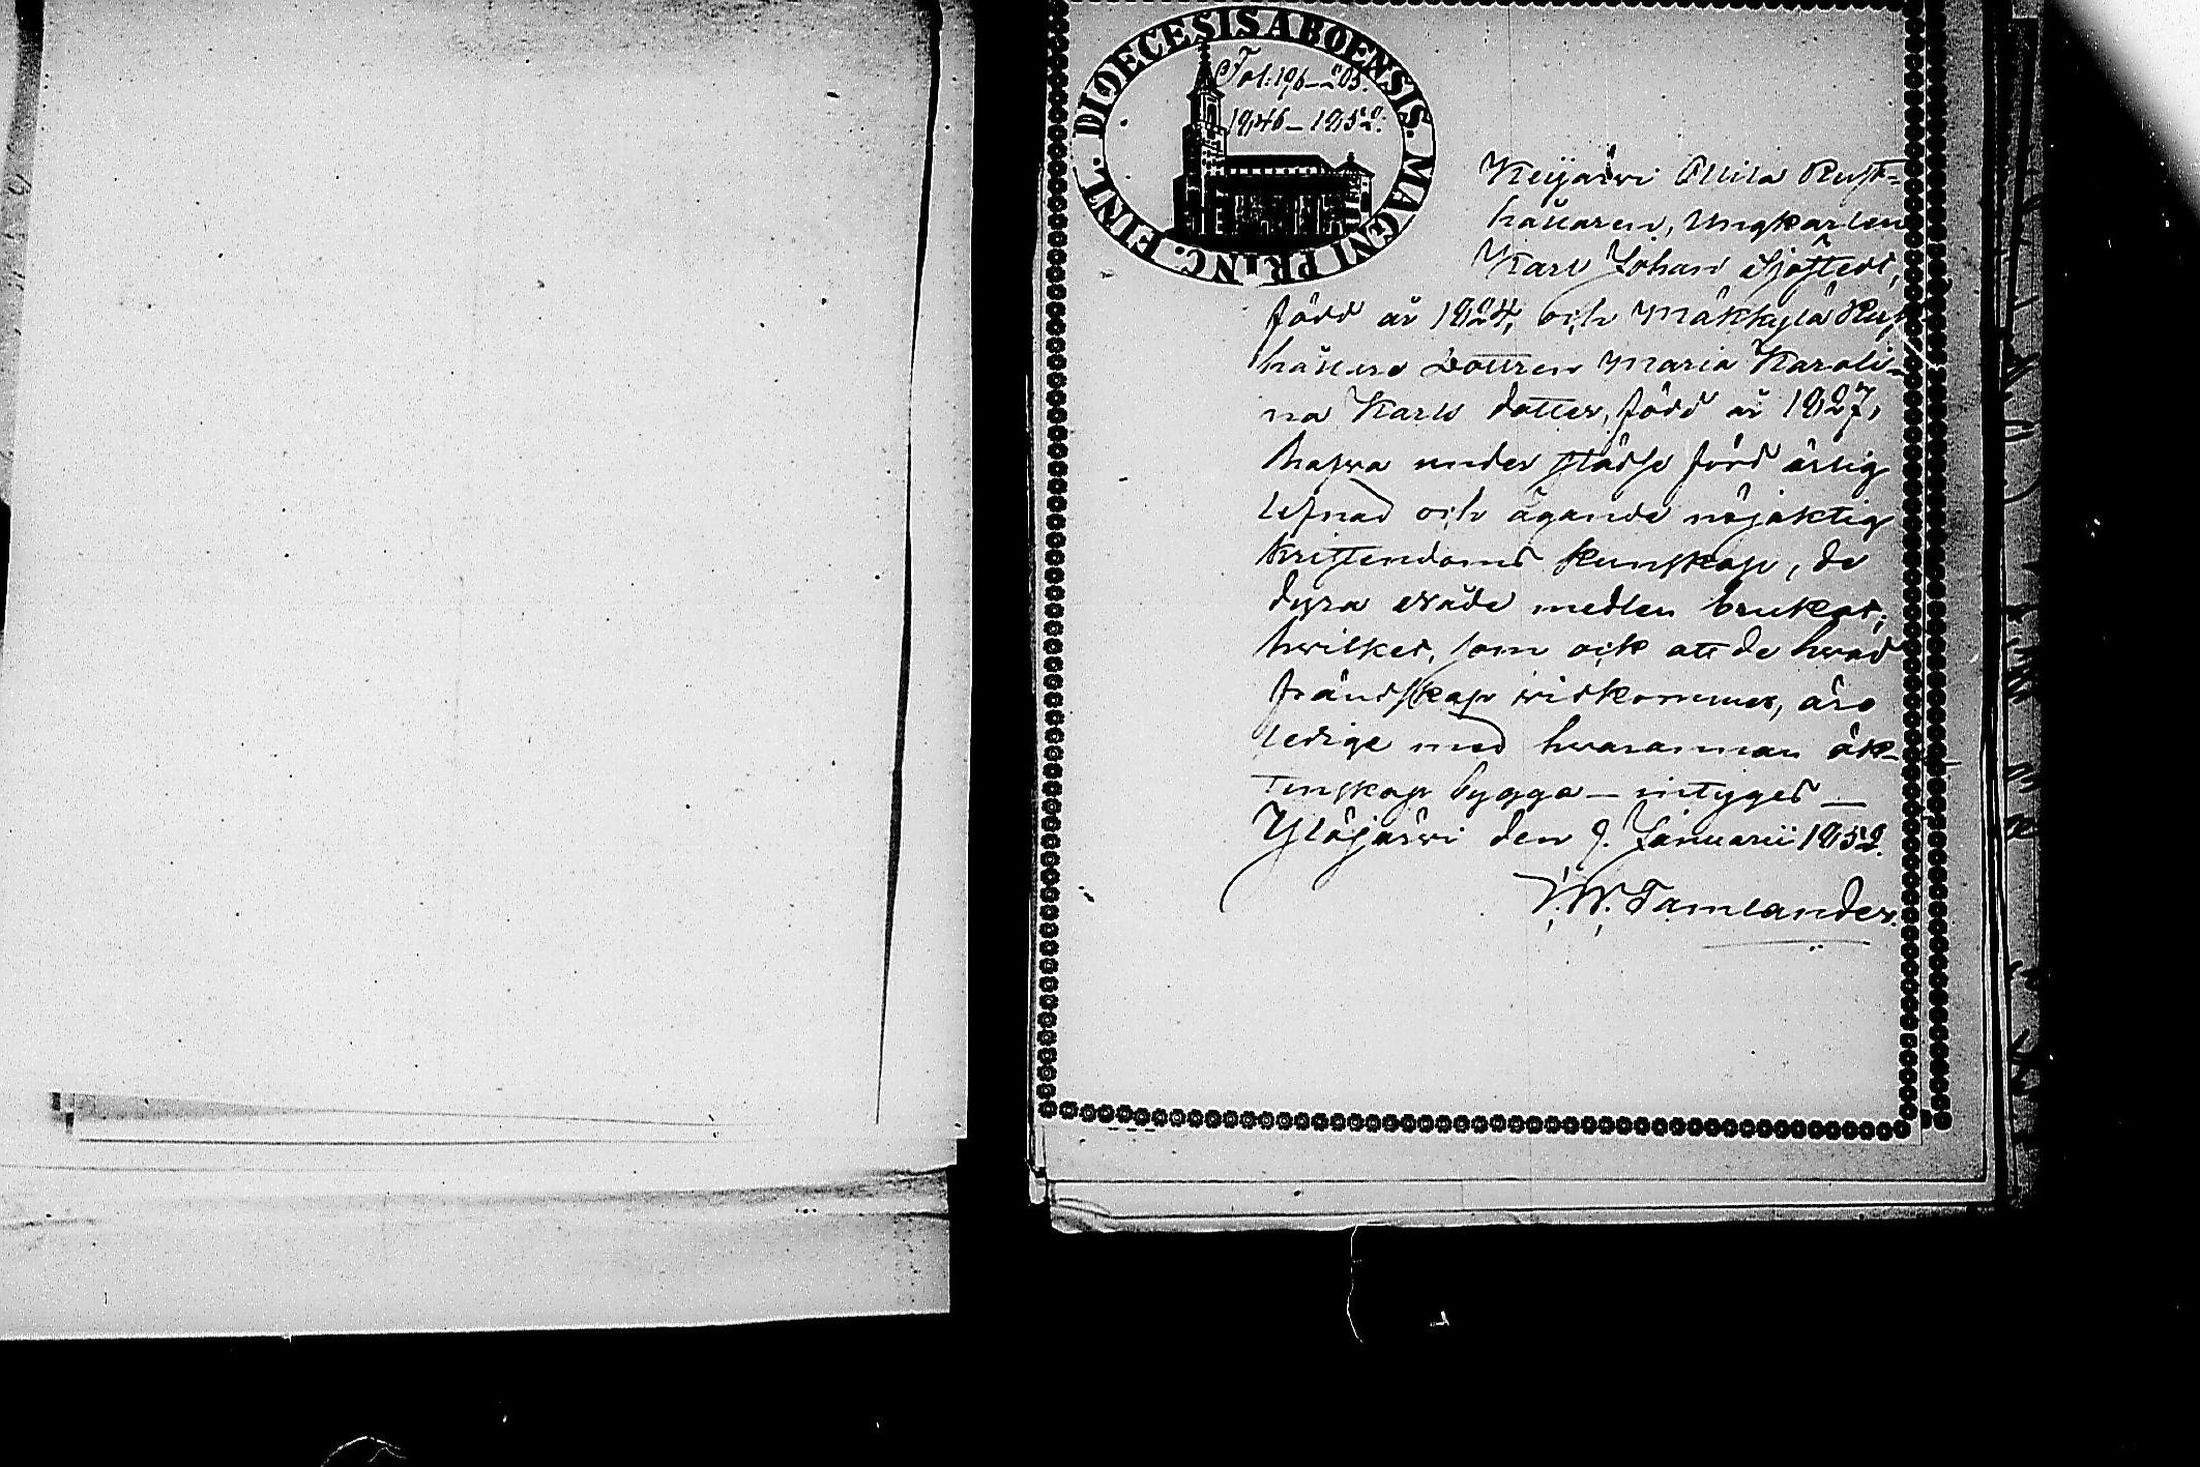 DIOECESIS ABOENSIS. MAGNI PRINC. FINL.
Fol. 196–203.
1846–1852.
Keijärwi Ollila Rust-
hållaren, Ungkarlen
Karl Johan Sjöstedt,
född år 1824, och Mäkkylä Rust
hållare Dottren Maria Karoli-
na Karls dotter, född år 1827,
hafwa under städse förd ärlig
lefnad och ägande nöjaktig
kristendoms kunskap, de
dyra nåde medlen brukat;
hwilket, som ock att de hwad
frändskap widkommer, äro
ledige med hwarannan äk-
tenskap bygga — intyges —
Ylöjärwi den 9. Januarii 1852.
Tamlander.